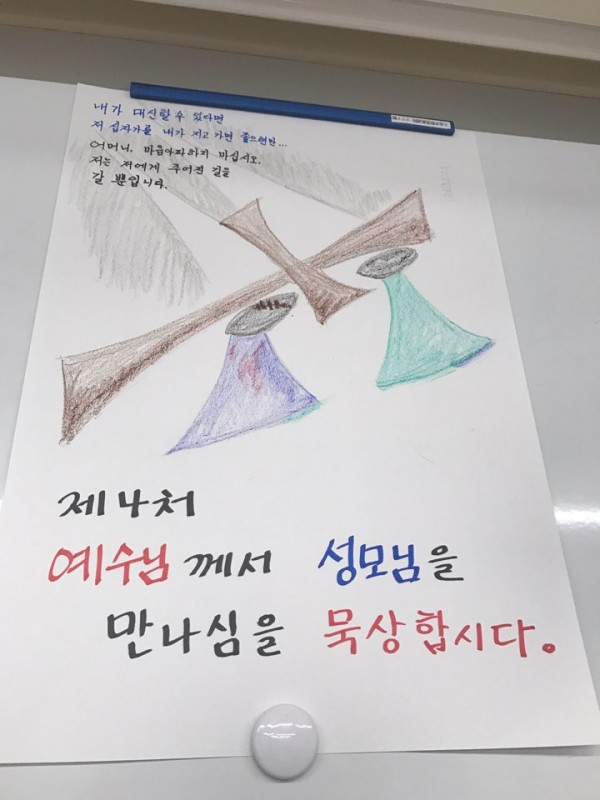 내가 대신할 수 있다면
저 십자가를 내가 지고 가면 좋으련만...
어머니, 마음아파하지 마십시오.
저는 저에게 주어진 길을
갈 뿐입니다.
제4처
예수님께서 성모님을
만나심을 묵상합시다.